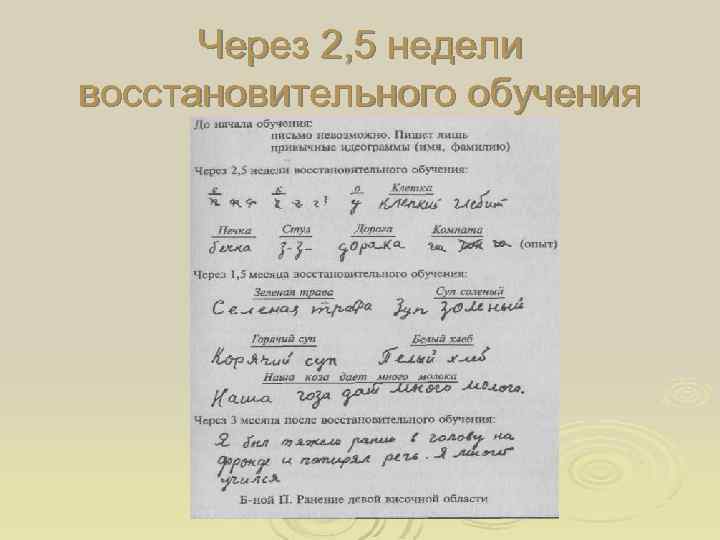 Через 2, 5 недели
восстановительного обучения
До начала обучения:
письмо невозможно. Пишет лишь
привычные идеограммы (имя, фамилию)
Через 2,5 недели восстановительного обучения:
к о Клетка
у клепкит глебит
Печка Стул Дорога Комната
бечка з-з- дорака га га (опыт)
Через 1,5 месяца восстановительного обучения:
Зеленая трава Суп соленый
Селеная трава Зуп золеный
Горячий суп Белый хлеб
Корячий суп Пелый хлеб
Наша коза дает много молока
Наша гоза дат много молого.
Через 3 месяца после восстановительного обучения:
Я был тяжело ранен в голову на
и речь. Я много
учился
Б-ной П. Ранение левой височной области